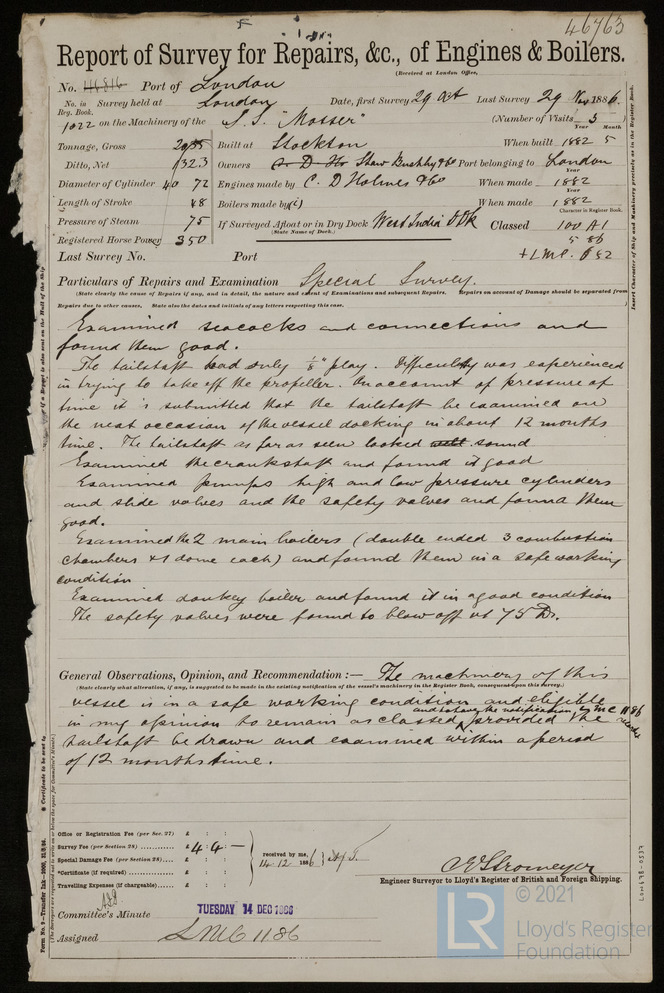 46763
Report of Survey for Repairs, &c., of Engines & Boilers.
(Received at London Office,
No. 46816 Port of London
No. in Reg. Book. Survey held at London Date, first Survey 29 Oct Last Survey 29 Nov 1886.
1022 on the Machinery of the S.S. "Mosser" (Number of Visits 3)
Tonnage, Gross Built at Stockton When built 1882 5
Ditto, Net 1323 Owners Shaw &Co Port belonging to London
Diameter of Cylinder 40 72 Engines made by C. D Holmes &Co When made 1882
Length of Stroke 48 Boilers made by (i) When made 1882
Pressure of Steam 75 If Surveyed Afloat or in Dry Dock West India D Dk Classed 100 A1
(State Name of Dock.) Character in Register Book.
Registered Horse Power 350 5 86
Last Survey No. Port +LMC. 82
Particulars of Repairs and Examination Special Survey.
(State clearly the cause of Repairs if any, and in detail, the nature and extent of Examinations and subsequent Repairs. Repairs on account of Damage should be separated from
Repairs due to other causes. State also the dates and initials of any letters respecting this case.
Examined seacocks and connections and
found them good.
The tailshaft had only 1/8" play. Difficulty was experienced
in trying to take off the propeller. On account of pressure of
time it is submitted that the tailshaft be examined on
the next occasion of the vessel docking in about 12 months
time. The tailshaft as far as seen looked sound
Examined the crankshaft and found it good
Examined pumps high and low pressure cylinders
and slide valves and the safety valves and found them
good.
Examined the 2 main boilers (double ended 3 combustion
chambers & 1 dome each) and found them in a safe working
condition
Examined donkey boiler and found it in a good condition
The safety valves were found to blow off at 75 lbs.
General Observations, Opinion, and Recommendation :— The machinery of this
(State clearly what alteration, if any, is suggested to be made in the existing notification of the vessel's machinery in the Register Book, consequent upon this survey.)
vessel is in a safe working condition and eligible
in my opinion to remain as classed and to have the notification LMC 11 86 provided the
tailshaft be drawn and examined within a period
of 12 months time.
Office or Registration Fee (per Sec. 27) £ : :
Survey Fee (per Section 28) £ 4 : 4 : —
Special Damage Fee (per Section 28) £ : : received by me, 14.12.1886
*Certificate (if required) £ : :
Travelling Expenses (if chargeable) £ : :
C E Stromeyer
Engineer Surveyor to Lloyd's Register of British and Foreign Shipping.
Committee's Minute TUESDAY 14 DEC 1886
Assigned LMC 11 86
Insert Character of Ship and Machinery precisely as in the Register Book.
* Certificate to be sent to
Form No. 9
LR
© 2021
Lloyd's Register
Foundation